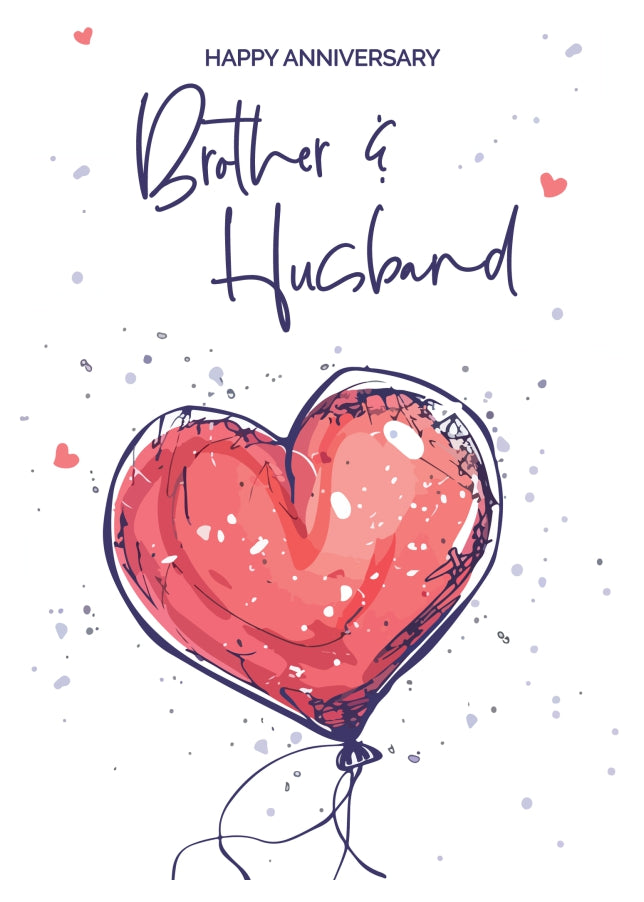 HAPPY ANNIVERSARY
Brother &
Husband